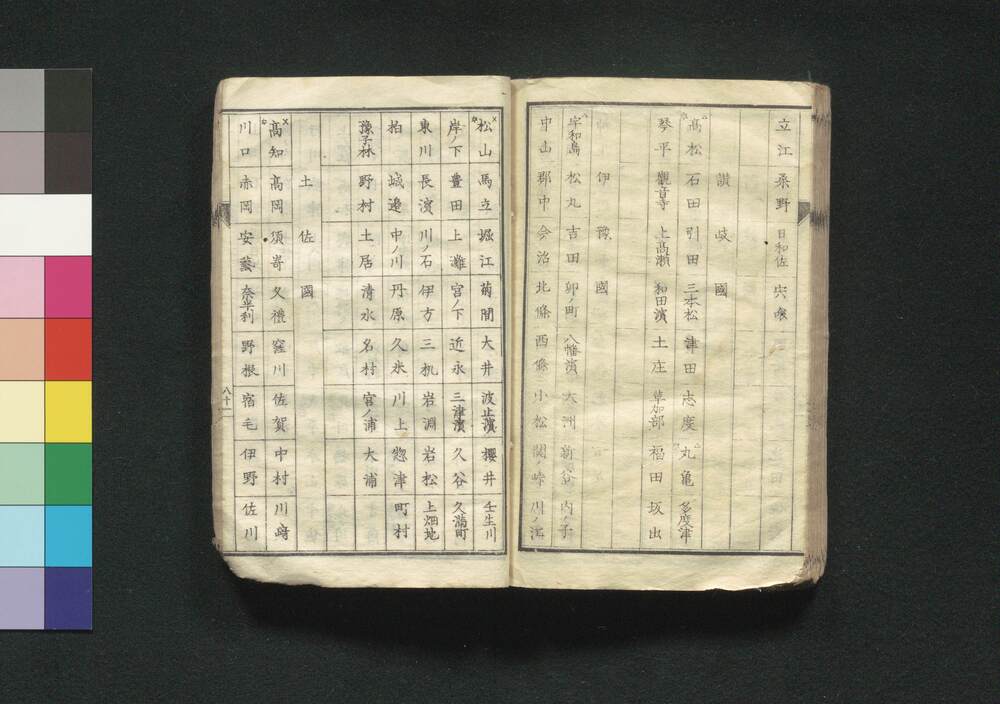 立江 桑野 日和佐 宍喰
讃岐國
高松 石田 引田 三本松 津田 志度 丸亀 多度津
琴平 觀音寺 上高瀬 和田濱 土庄 草加部 福田 坂出
伊豫國
宇和島 松丸 吉田 卯ノ町 八幡濱 大洲 新谷 内ノ子
中山 郡中 今治 北條 西條 小松 関ノ峠 川ノ江
松山 馬立 堀江 菊間 大井 波止濱 櫻井 壬生川
岸ノ下 豊田 上灘 宮ノ下 近永 三津濱 久谷 久萬町
東川 長濱 川ノ石 伊方 三机 岩淵 岩松 上畑地
柏 城邊 中ノ川 丹原 久米 川上 惣津 町村
豫子林 野村 土居 清水 名村 宮ノ浦 大浦
土佐國
高知 高岡 須嵜 久禮 窪川 佐賀 中村 川﨑
川口 赤岡 安藝 奈半利 野根 宿毛 伊野 佐川
八十一